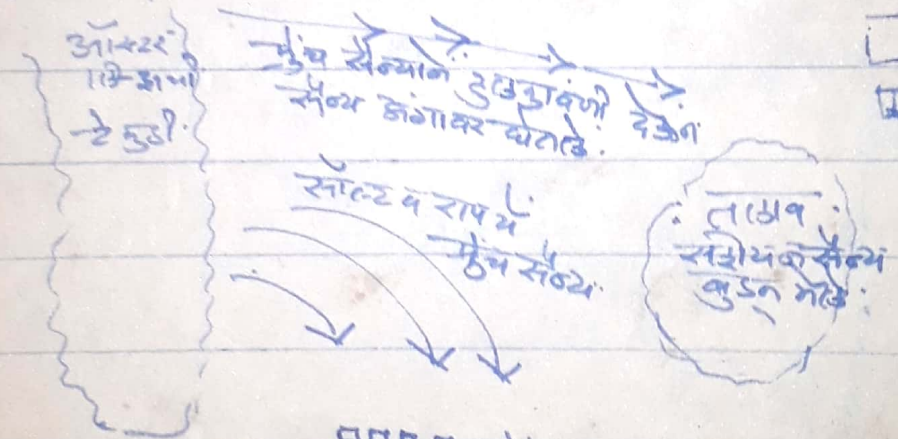 ऑस्टर
टेकडी.
फ्रेंच सैन्याने हुलकावणी देऊन
सैन्य अंगावर घेतले.
सॉल्ट व रापचे
फ्रेंच सैन्य.
तलाव
सैन्य
बुडून मेले.